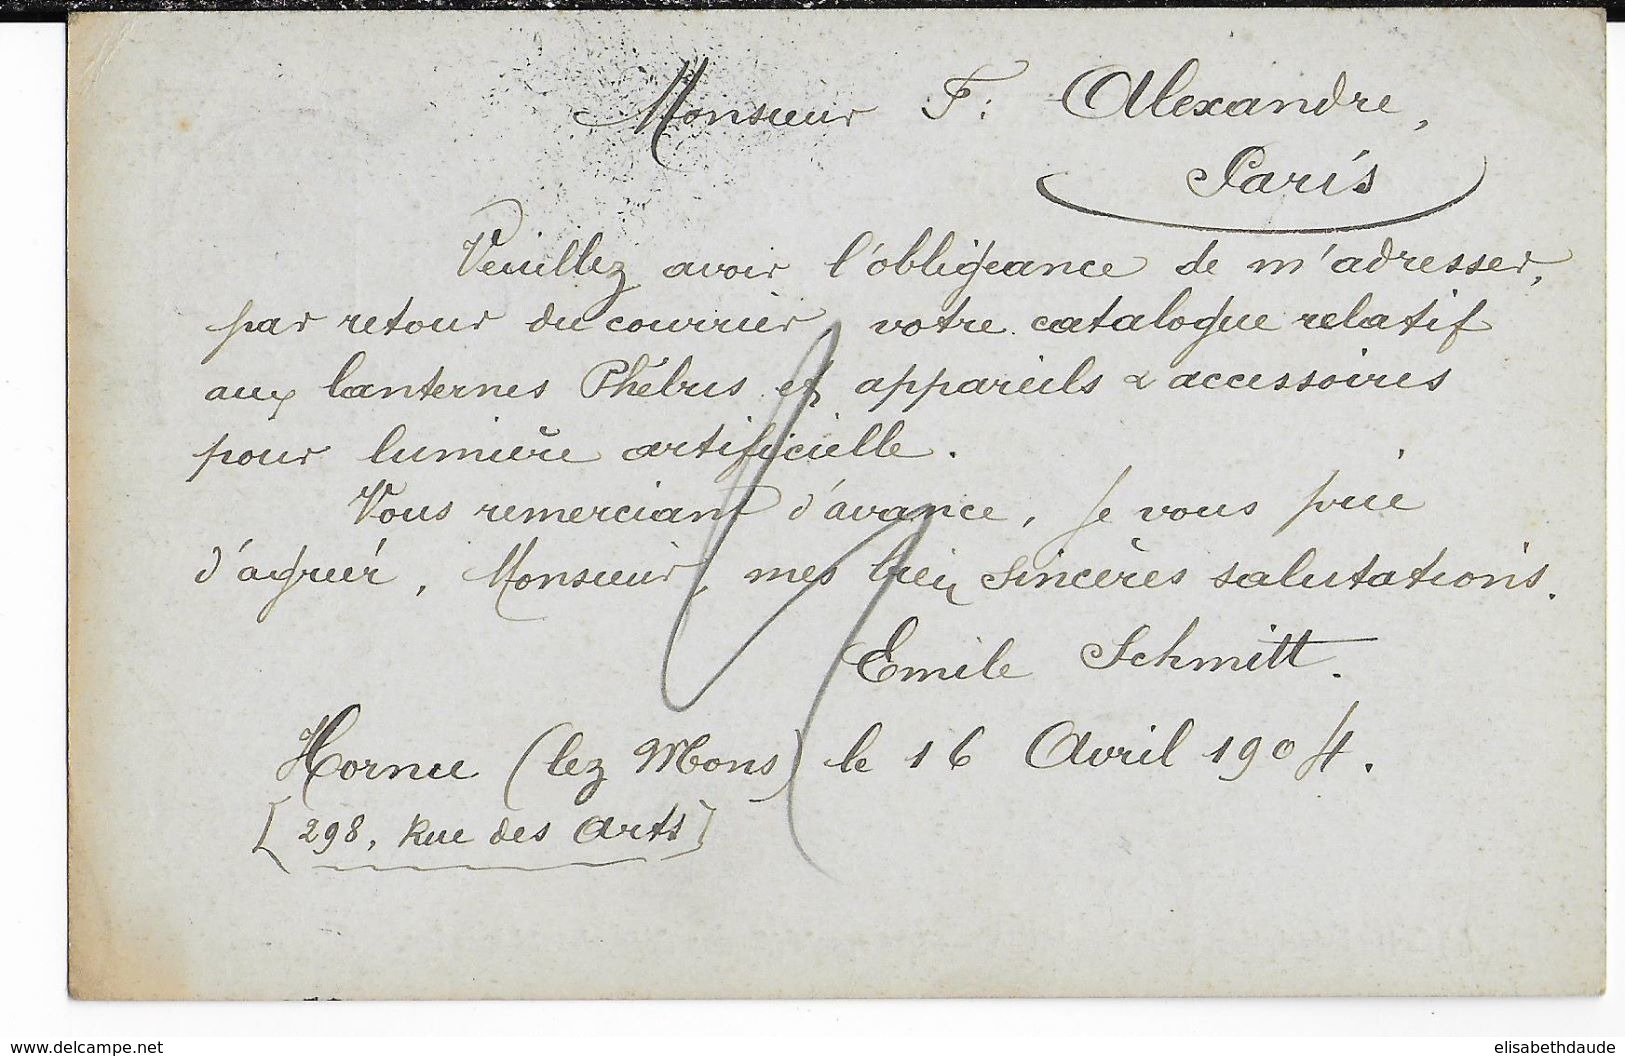 Monsieur F. Alexandre,
Paris
Veuillez avoir l'obligeance de m'adresser,
par retour du courrier, votre catalogue relatif
aux lanternes Phébus et appareils & accessoires
pour lumière artificielle.
Vous remerciant d'avance, je vous prie
d'agréer, Monsieur, mes bien sincères salutations.
Emile Schmitt.
Hornu (lez Mons) le 16 Avril 1904.
[298, Rue des Arts]
www.delcampe.net
elisabethdaude